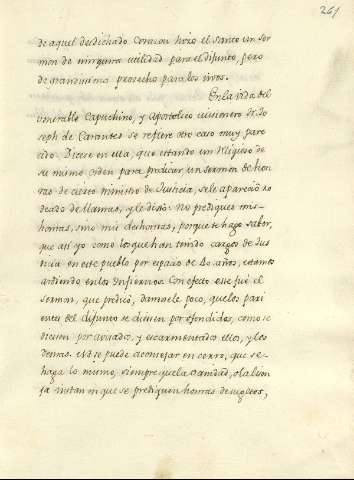 261
de aquel desdichado Corazon hizo el santo un ser
mon de ninguna utilidad para el difunto, pero
de grandissimo provecho para los vivos.
En la vida del
venerable Capuchino, y Apostolico missionero Fr. Jo
seph de Carantes se refiere otro caso muy pare
cido. Dicese en ella, que estando un Religioso de
su mismo orden para predicar un sermon de hon
ras de cierto ministro de Justicia, se le apareciò ro
deado de llamas, y le dixo: No prediques mis
honras, sino mis deshonras, porque te hago saber,
que assi yo como los que han tenido cargos de Jus
ticia en este pueblo por espacio de 40 años, estamos
ardiendo en los Infiernos. Con efecto este fuè el
sermon, que predicò, dandosele poco, que los pari
entes del difunto se diessen por ofendidos, como se
diessen por avisados, y escarmentados ellos, y los
demas. No se puede aconsejar en cerro, que se
haga lo mismo, siempre que la vanidad, o la lison
ja instan en que se prediquen honras de sugetos,